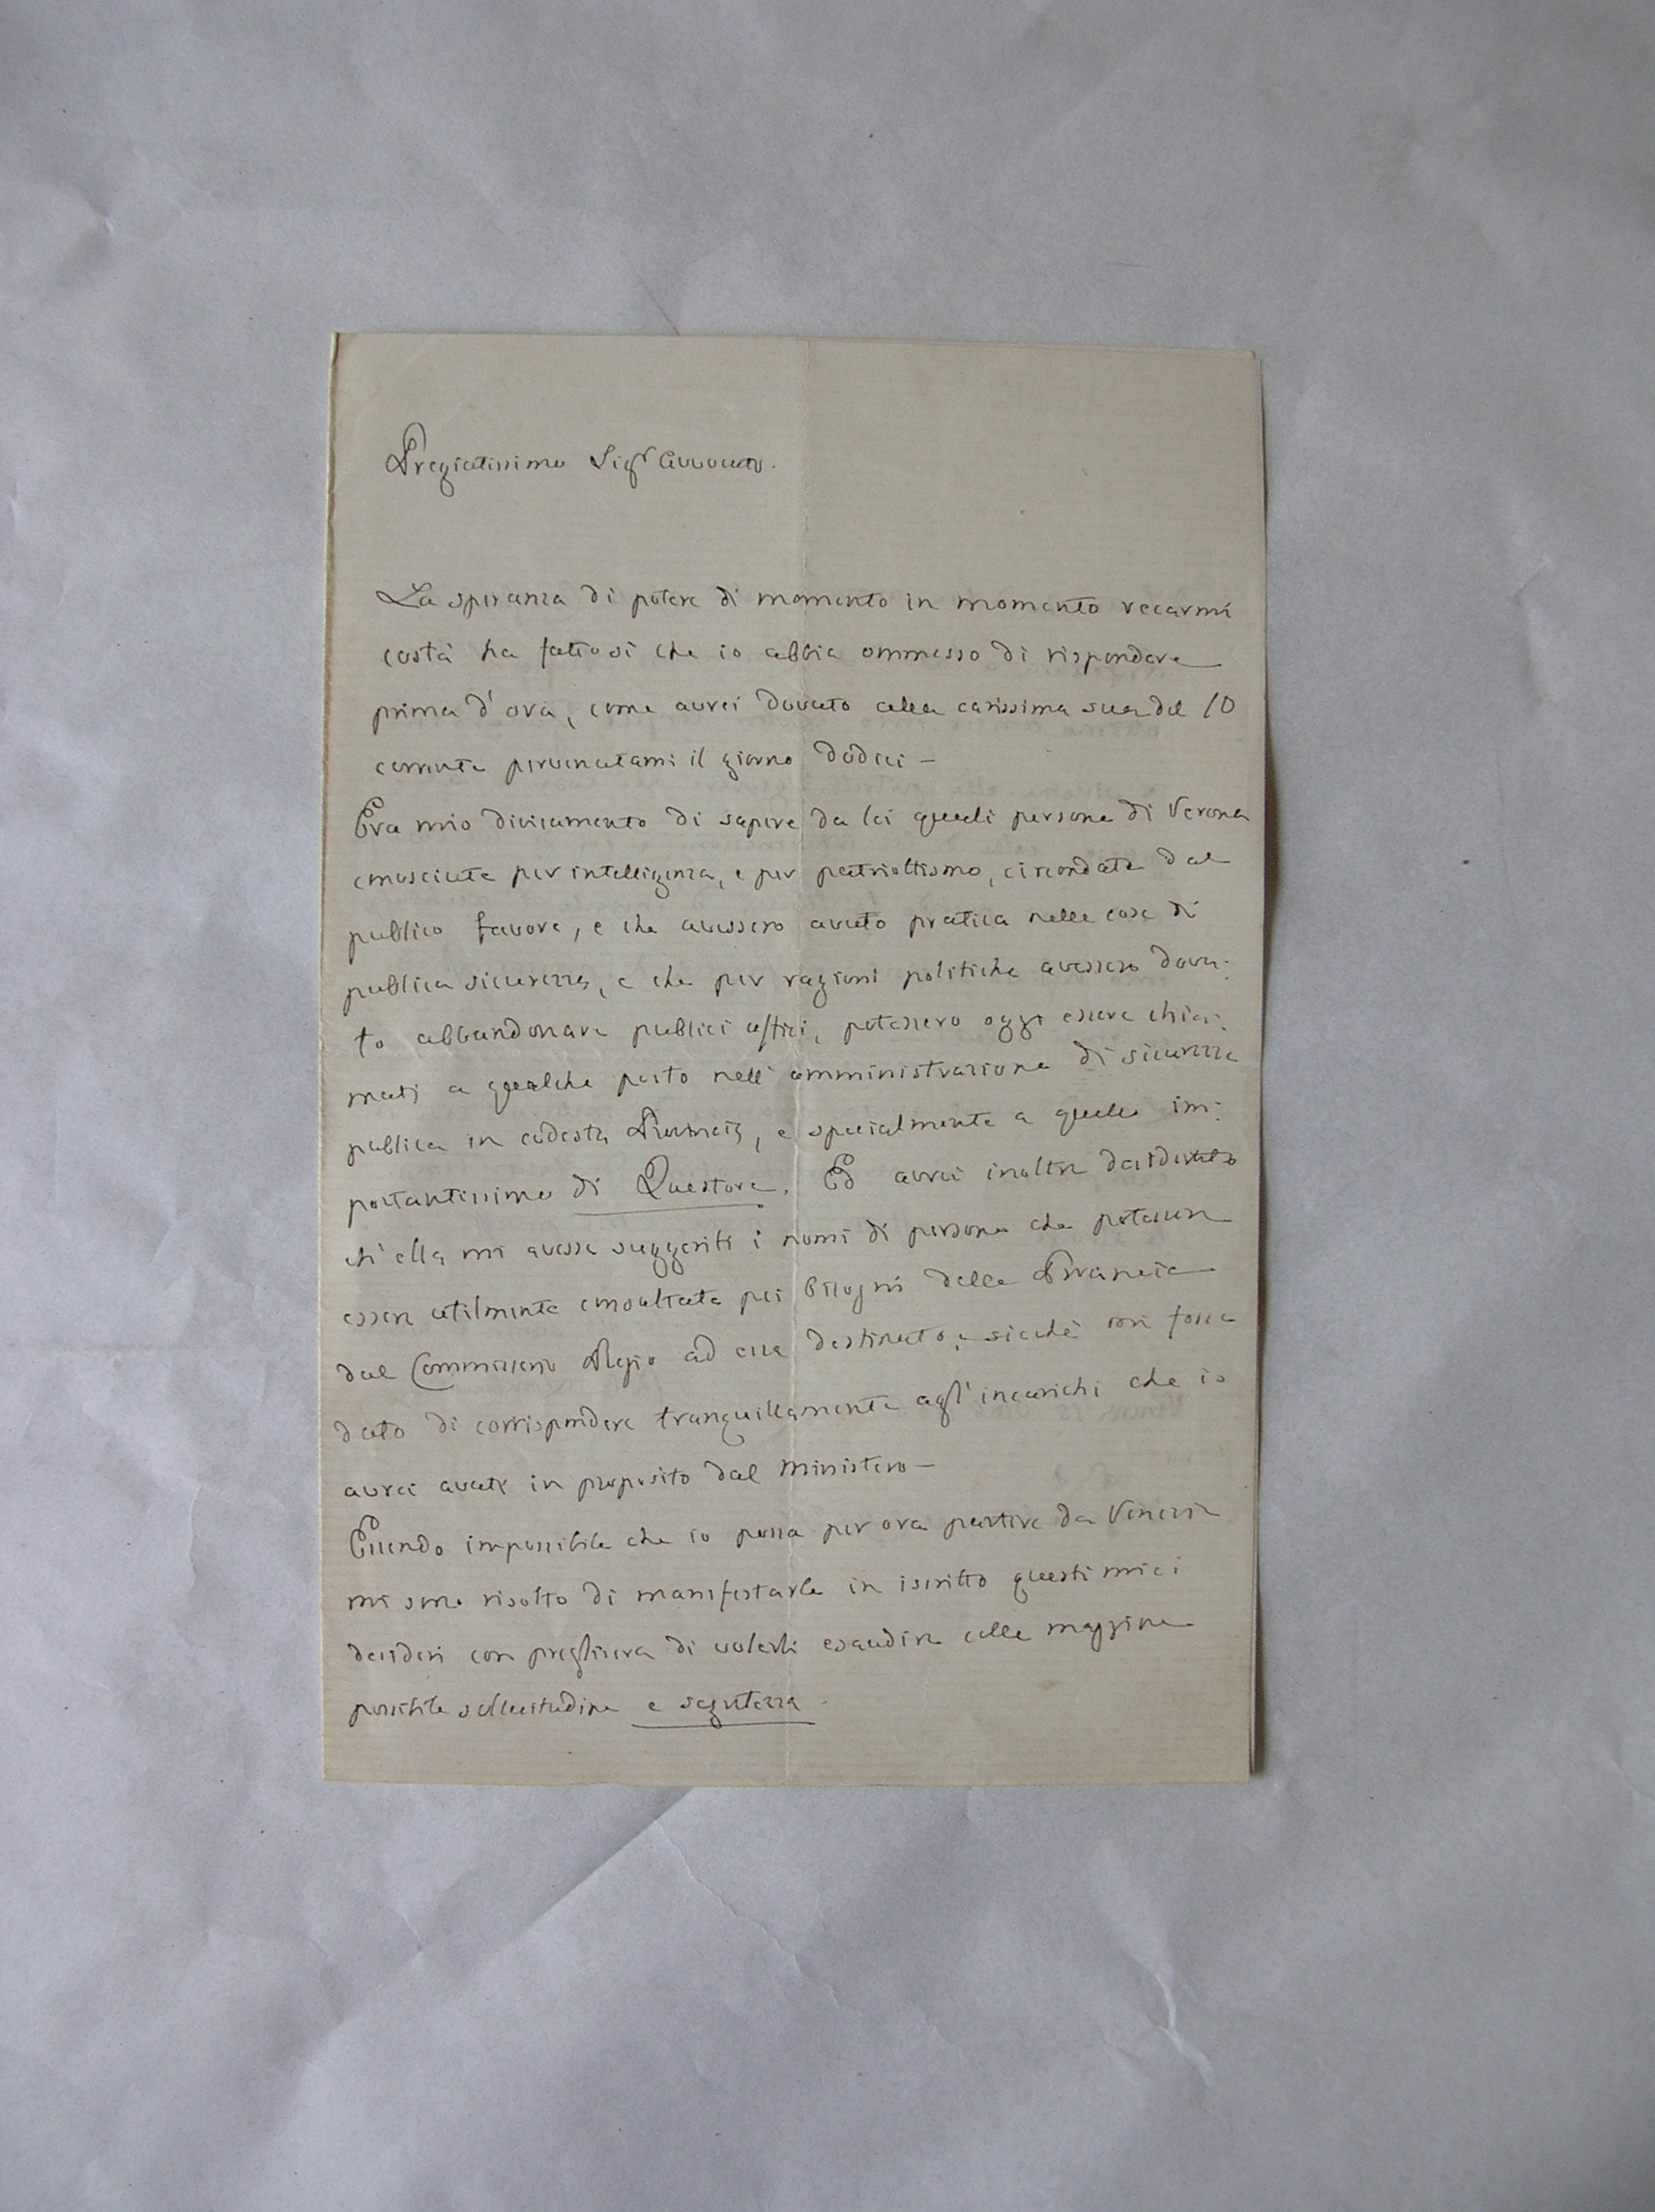 Pregiatissimo Sigr Avvocato.
La speranza di potere di momento in momento recarmi
costà ha fatto sì che io abbia ommesso di rispondere
prima d'ora, come avrei dovuto alla carissima sua del 10
corrente pervenutami il giorno dodici –
Era mio divisamento di sapere da lei quali persone di Verona
conosciute per intelligenza, e per patriottismo, circondate dal
publico favore, e che avessero avuto pratica nelle cose di
publica sicurezza, e che per ragioni politiche avessero dovu:
to abbandonare publici uffici, potessero oggi essere chia:
mati a qualche posto nell'amministrazione di sicurezza
publica in codesta Provincia, e specialmente a quello im:
portantissimo di Questore. Ed avrei inoltre desiderato
ch'ella mi avesse suggeriti i nomi di persone che potessero
essere utilmente consultate pei bisogni della Provincia
dal Commissario Regio ad essa destinato, sicchè mi fosse
dato di corrispondere tranquillamente agl'incarichi che io
avrei avuti in proposito dal Ministero –
Essendo impossibile che io possa per ora partire da Venezia
mi sono risolto di manifestarle in iscritto questi miei
desideri con preghiera di volerli esaudire colla maggiore
possibile sollecitudine e segretezza –